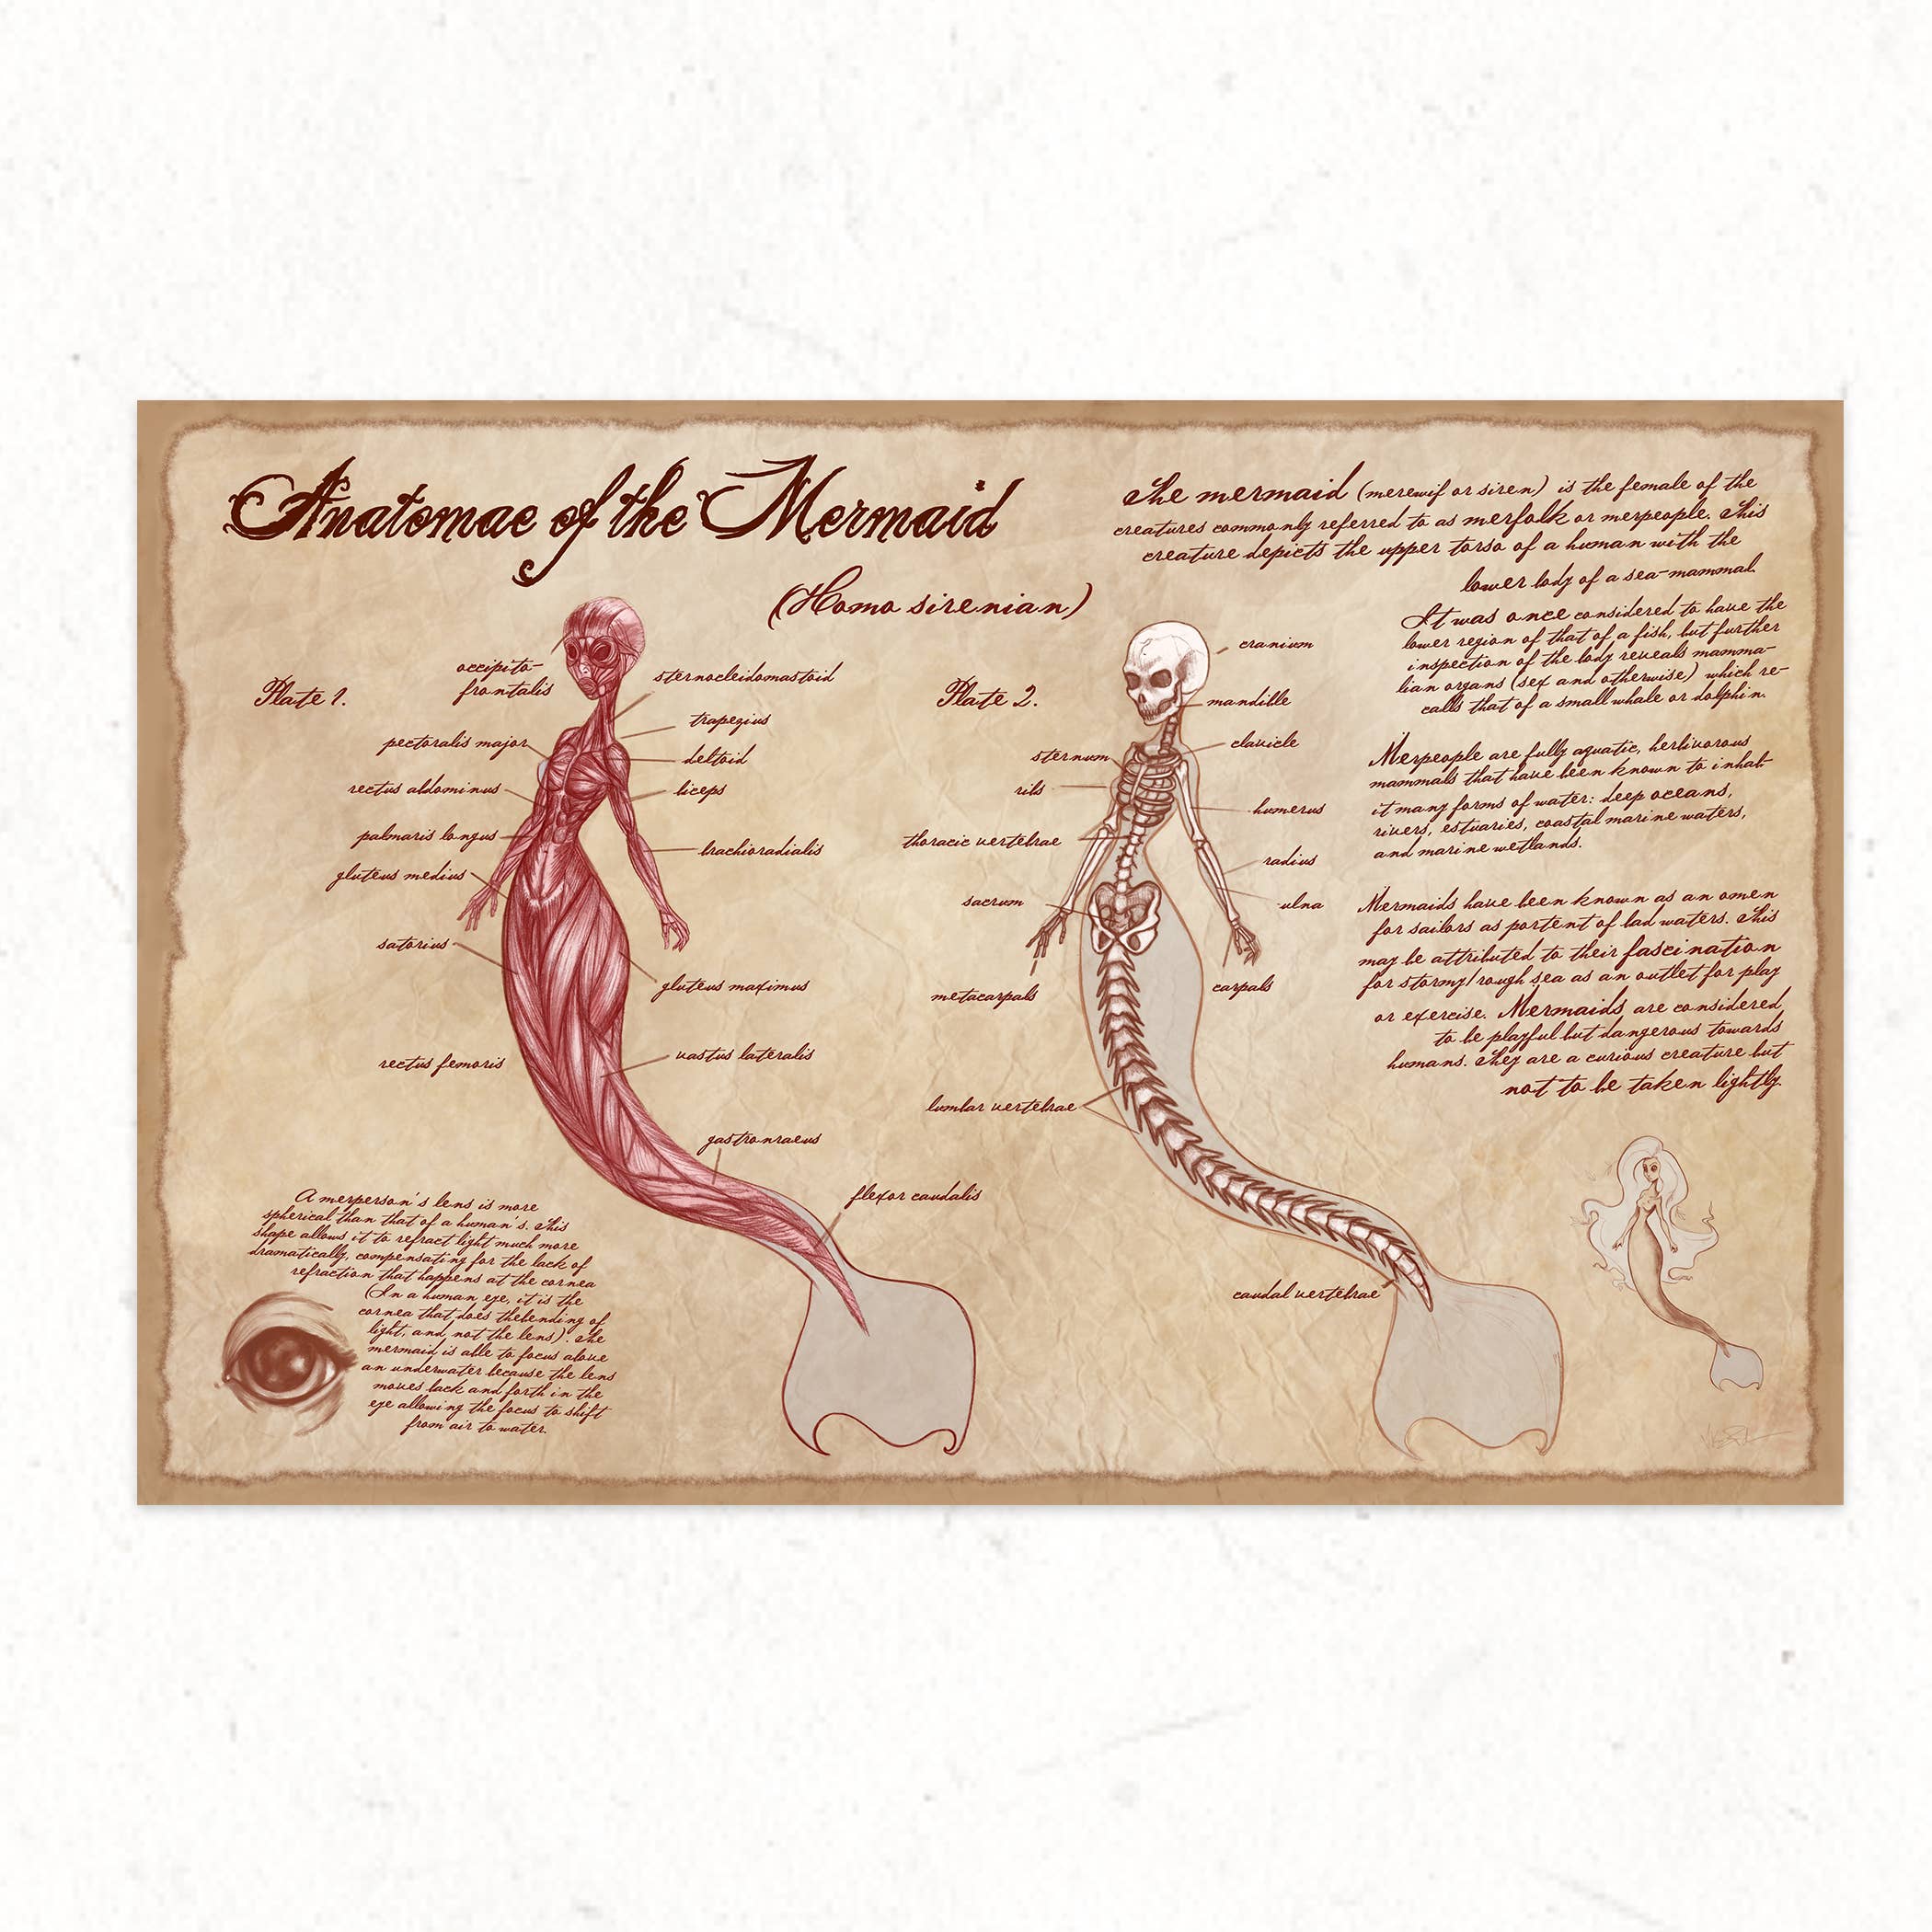 Anatomae of the Mermaid
(Homo sirenian)
The mermaid (merewif or siren) is the female of the
creatures commonly referred to as merfolk or merpeople. This
creature depicts the upper torso of a human with the
lower body of a sea-mammal.
It was once considered to have the
lower region of that of a fish, but further
inspection of the body reveals mamma-
lian organs (sex and otherwise) which re-
calls that of a small whale or dolphin.
Merpeople are fully aquatic, herbivorous
mammals that have been known to inhab-
it many forms of water: deep oceans,
rivers, estuaries, coastal marine waters,
and marine wetlands.
Mermaids have been known as an omen
for sailors as portent of bad waters. This
may be attributed to their fascination
for stormy/rough sea as an outlet for play
or exercise. Mermaids are considered
to be playful but dangerous towards
humans. They are a curious creature but
not to be taken lightly.
Plate 1.
occipito-
frontalis
sternocleidomastoid
trapezius
pectoralis major
deltoid
rectus abdominus
biceps
palmaris longus
brachioradialis
gluteus medius
satorius
gluteus maximus
rectus femoris
vastus lateralis
gastronraeus
flexor caudalis
Plate 2.
cranium
mandible
clavicle
sternum
ribs
humerus
thoracic vertebrae
radius
sacrum
ulna
metacarpals
carpals
lumbar vertebrae
caudal vertebrae
A merperson's lens is more
spherical than that of a human's. This
shape allows it to refract light much more
dramatically, compensating for the lack of
refraction that happens at the cornea
(In a human eye, it is the
cornea that does thebending of
light, and not the lens). The
mermaid is able to focus above
an underwater because the lens
moves back and forth in the
eye allowing the focus to shift
from air to water.